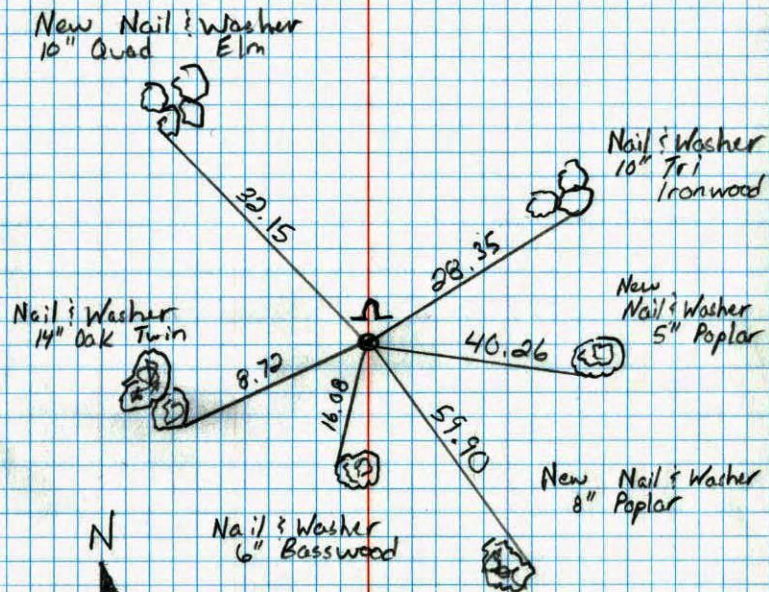 New Nail & Washer
10" Quad Elm
Nail & Washer
10" Tri
Ironwood
32.15
28.35
New
Nail & Washer
5" Poplar
Nail & Washer
14" Oak Twin
40.26
8.72
16.08
59.90
New Nail & Washer
8" Poplar
Nail & Washer
6" Basswood
N